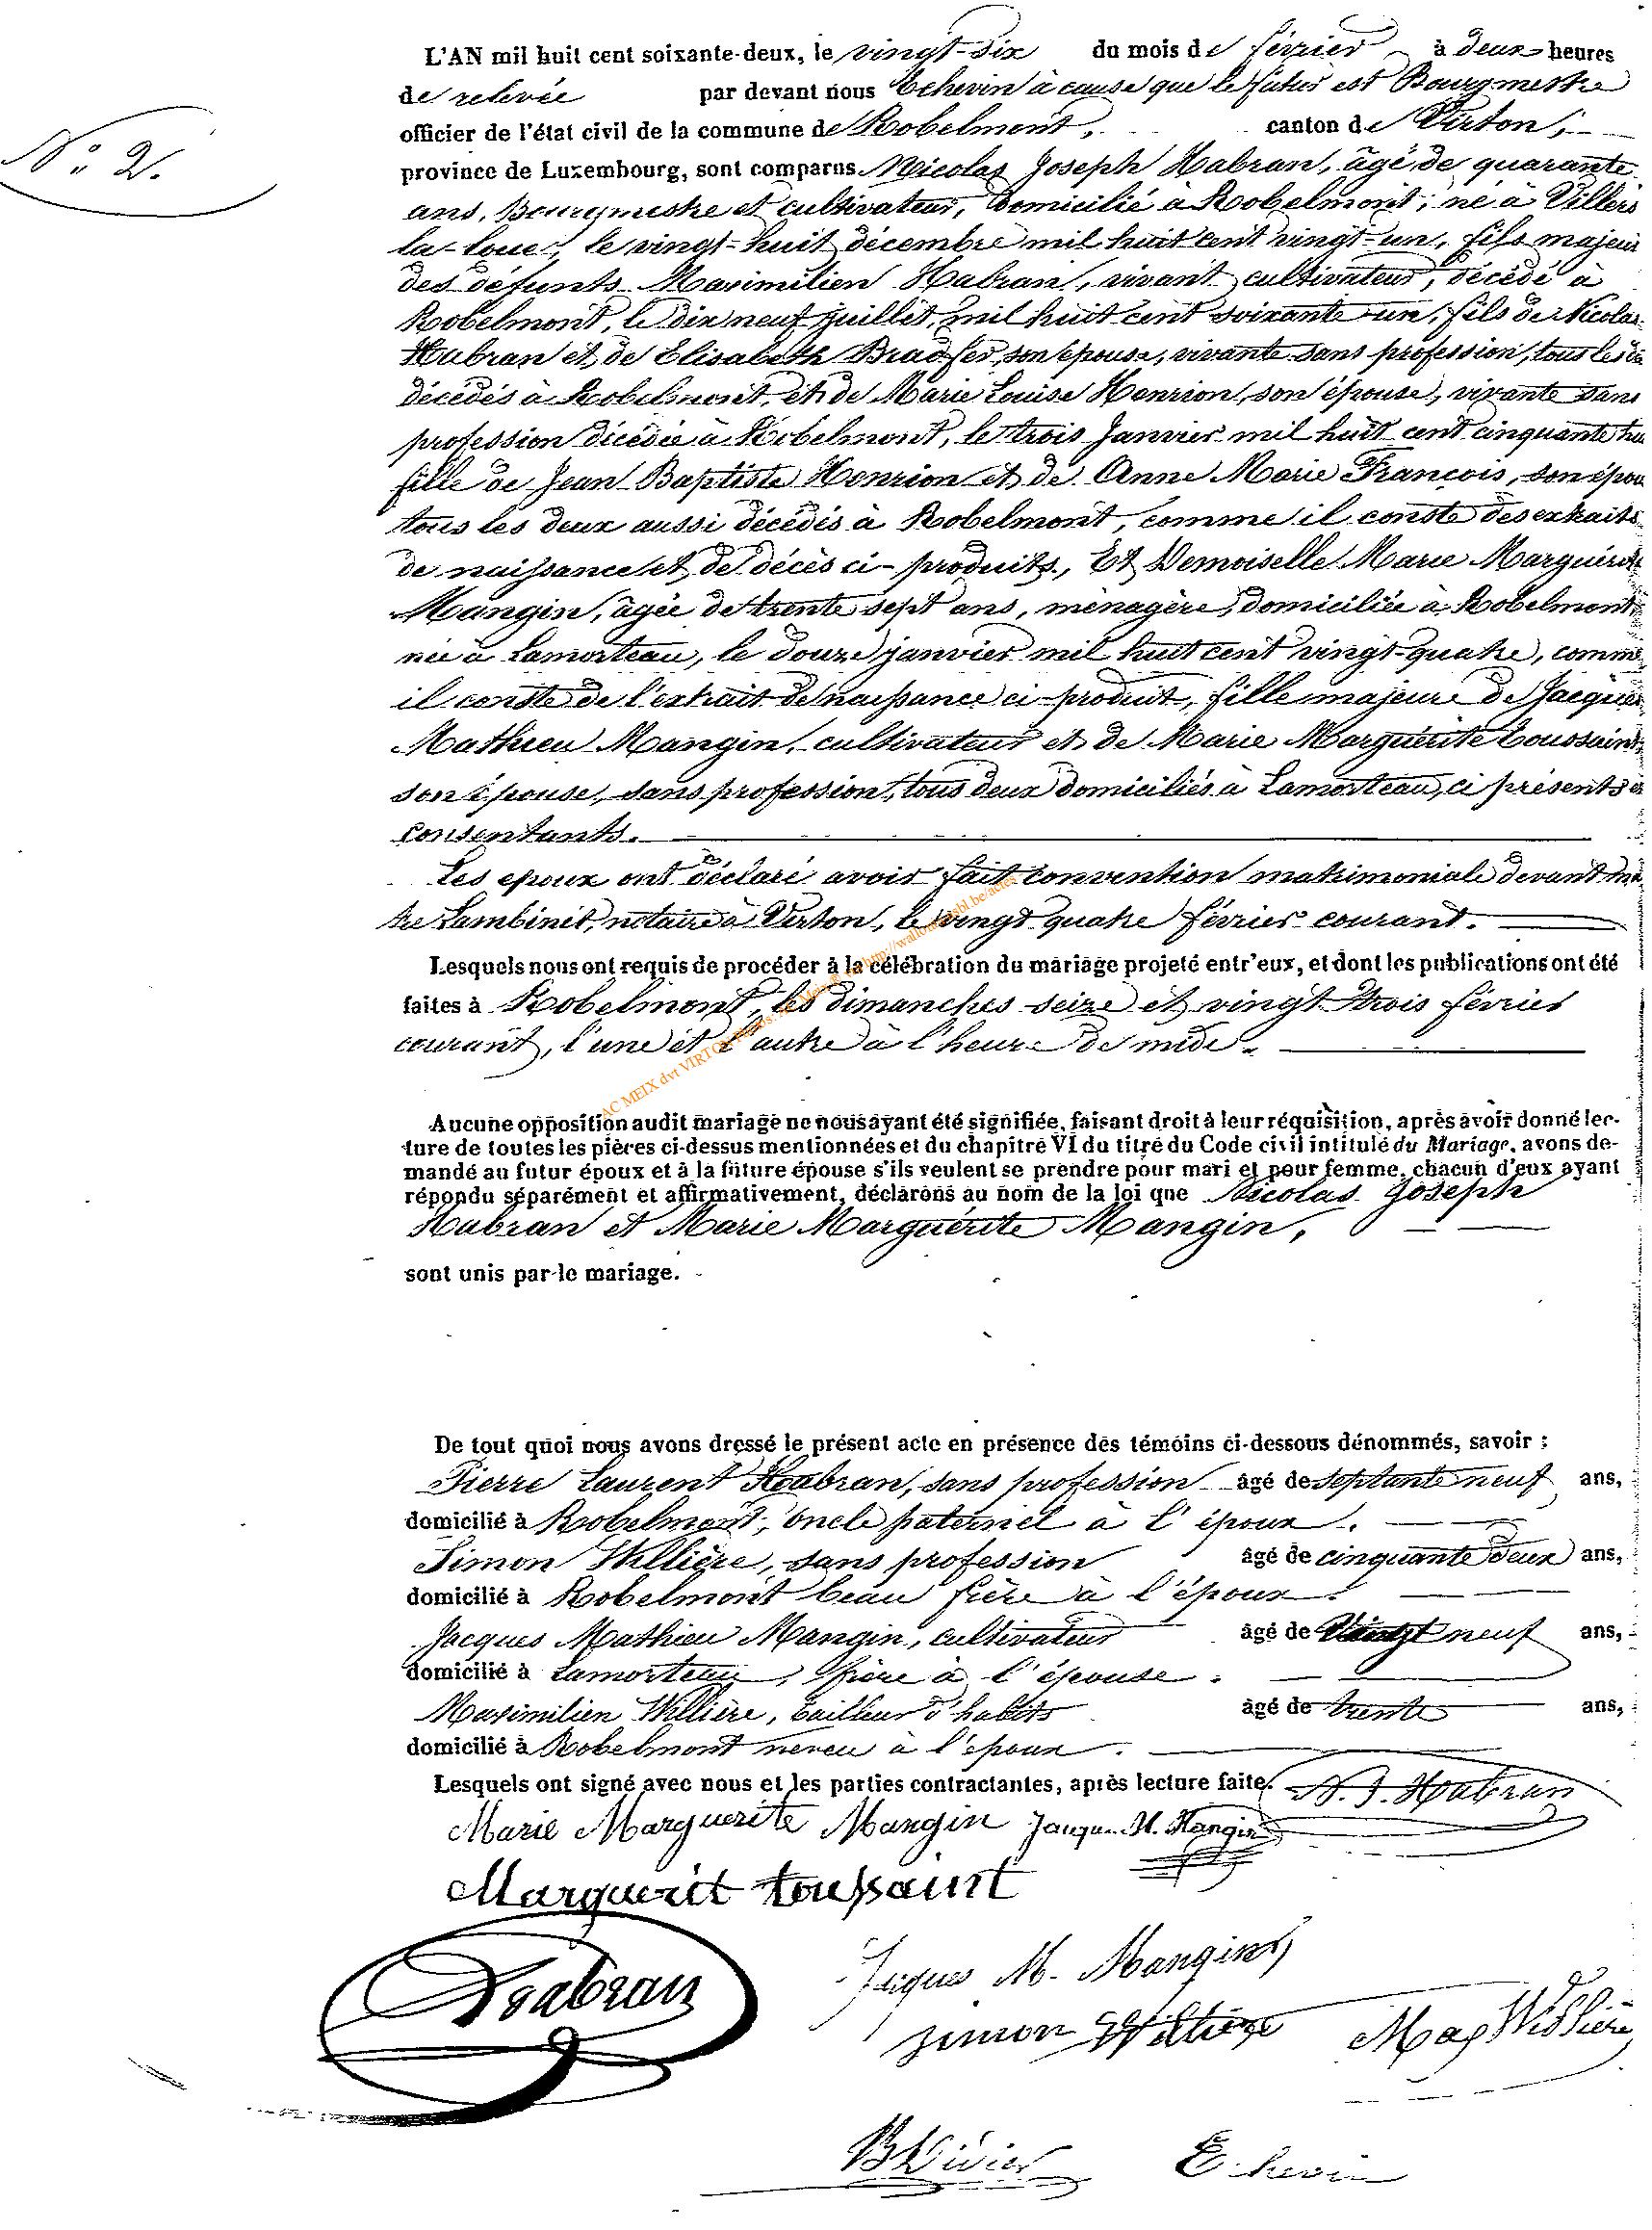 L'AN mil huit cent soixante-deux, le vingt-six du mois de février à deux heures
de relevée par devant nous Echevin à cause que le futur est Bourgmestre
N.° 2.
officier de l'état civil de la commune de Robelmont, canton de Virton,
province de Luxembourg, sont comparus Nicolas Joseph Habran, âgé de quarante
ans, Bourgmestre et cultivateur, domicilié à Robelmont, né à Villers
la-loue, le vingt-huit décembre mil huit cent vingt-un, fils majeur
des défunts Maximilien Habran, vivant cultivateur, décédé à
Robelmont, le dix neuf juillet, mil huit cent soixante-un, fils de Nicolas
Habran et de Elisabeth Bradfer, son épouse, vivante sans profession, tous les
décédés à Robelmont, et de Marie Louise Henrion, son épouse, vivante sans
profession décédée à Robelmont, le trois Janvier mil huit cent cinquante
fille de Jean Baptiste Henrion et de Anne Marie François, son épou
tous les deux aussi décédés à Robelmont, comme il conste des extraits
de naissance et de décès ci-produits, Et Demoiselle Marie Marguérite
Mangin, âgée de trente sept ans, ménagère, domiciliée à Robelmont
née à Lamorteau, le douze janvier mil huit cent vingt-quatre, comme
il conste de l'extrait de naissance ci-produit, fille majeure de Jacques
Mathieu Mangin, cultivateur et de Marie Marguérite Toussaint
son épouse, sans profession, tous deux domiciliés à Lamorteau, ci présents et
consentants.
Les epoux ont déclaré avoir fait convention matrimoniale devant maî
tre Lambinet, notaire à Virton, le vingt quatre février courant.
Lesquels nous ont requis de procéder à la célébration du mariage projeté entr'eux, et dont les publications ont été
faites à Robelmont, les dimanches seize et vingt trois février
courant, l'une et l'autre à l'heure de midi.
AC MEIX dvt VIRTON
Aucune opposition audit mariage ne nous ayant été signifiée, faisant droit à leur réquisition, après avoir donné lec-
ture de toutes les pièces ci-dessus mentionnées et du chapitre VI du titre du Code civil intitulé du Mariage, avons de-
mandé au futur époux et à la future épouse s'ils veulent se prendre pour mari et pour femme, chacun d'eux ayant
répondu séparément et affirmativement, déclarons au nom de la loi que Nicolas Joseph
Habran et Marie Marguérite Mangin,
sont unis par le mariage.
De tout quoi nous avons dressé le présent acte en présence des témoins ci-dessous dénommés, savoir :
Pierre Laurent Habran, sans profession âgé de septante neuf ans,
domicilié à Robelmont, oncle paternel à l'époux.
Simon Willière, sans profession âgé de cinquante deux ans,
domicilié à Robelmont beau frère à l'époux.
Jacques Mathieu Mangin, cultivateur âgé de Vingt neuf ans,
domicilié à Lamorteau, frère à l'épouse.
Maximilien Willière, tailleur d'habits âgé de trente ans,
domicilié à Robelmont neveu à l'époux.
Lesquels ont signé avec nous et les parties contractantes, après lecture faite. N. J. Habran
Marie Marguerite Mangin Jacques M. Mangin
Marguerit toussaint
Habran
Jacques M. Mangin
Simon Willière Max Willière
Echevin